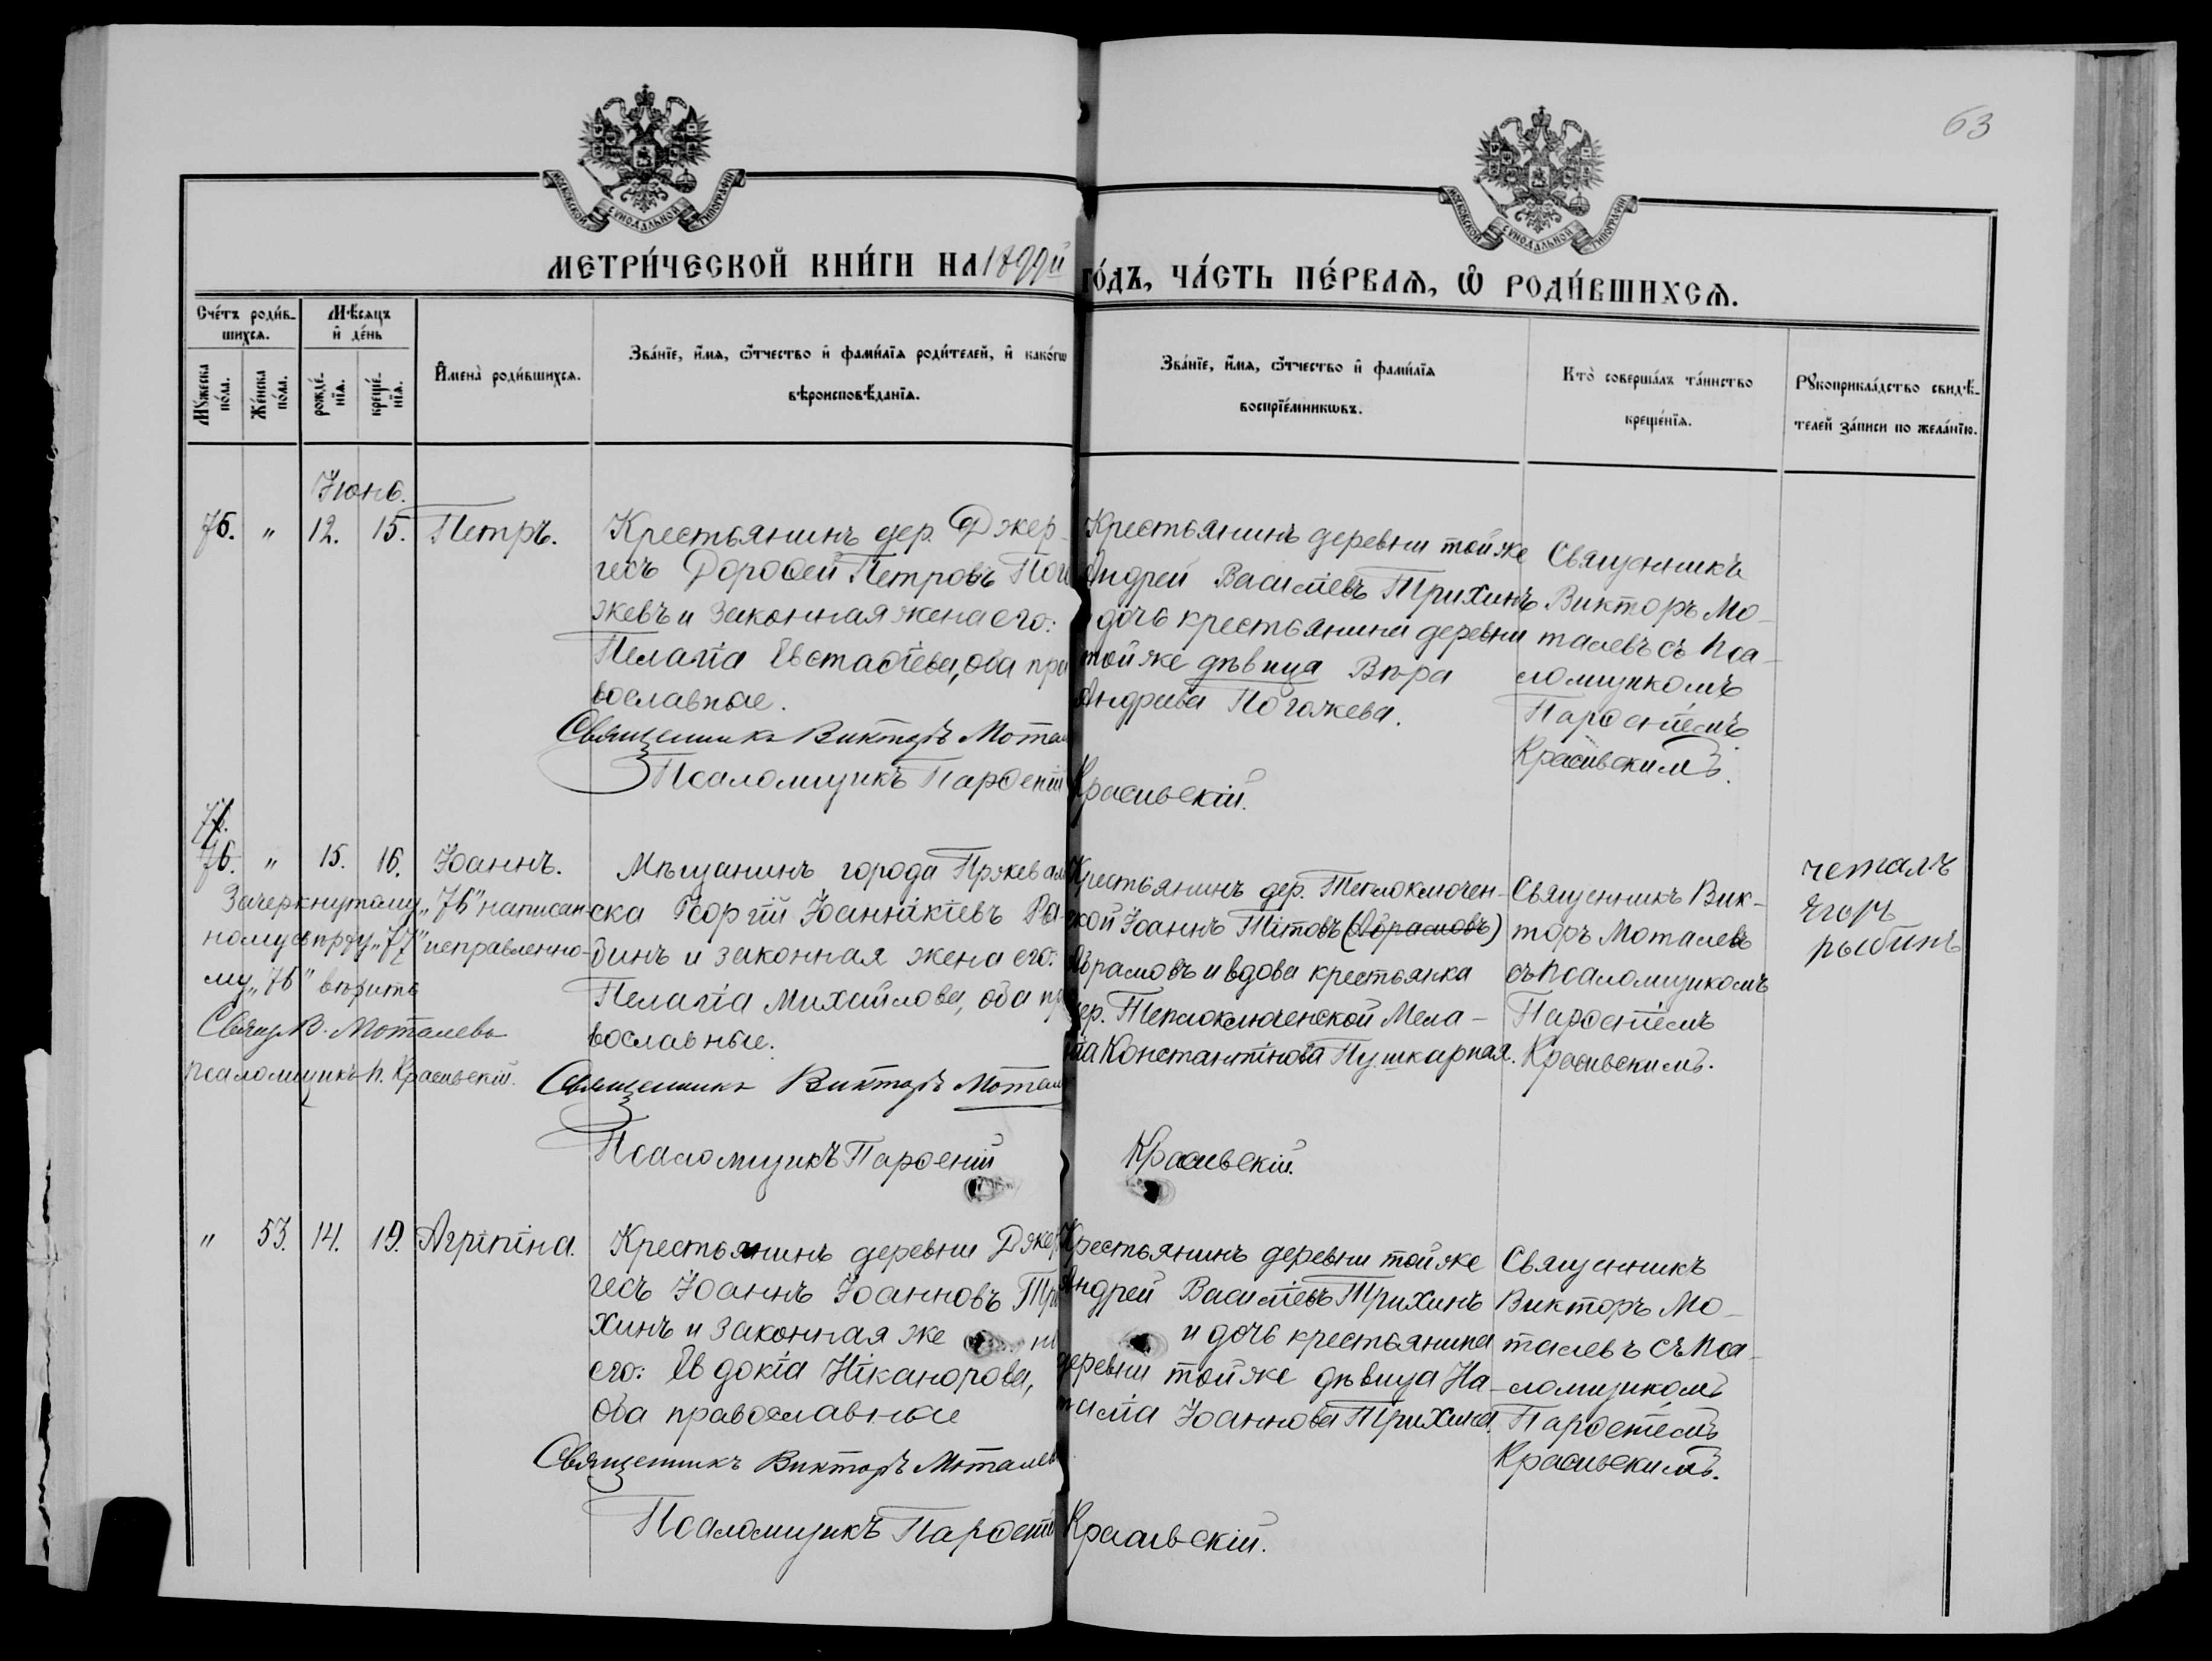 63
МОСКОВСКОЙ СУНОДАЛЬНОЙ ТИПОГРАФІИ
МОСКОВСКОЙ СУНОДАЛЬНОЙ ТИПОГРАФІИ
МЕТРИ́ЧЕСКОЙ КНИ́ГИ НА 1899й
ГО́ДЪ, ЧА́СТЬ ПЕ́РВАѦ, Ѡ РОДИ́ВШИХСѦ.
Сче́тъ роди́в-
шихсѧ.
Му́жеска по́ла.
Же́нска по́ла.
Мѣ́сѧцъ
и де́нь
рожде́-
нїѧ.
креще́-
нїѧ.
Имена̀ роди́вшихсѧ.
Зва́нїе, и́мѧ, ѻ́тчество и фами́лїѧ роди́телей, и како́гѡ
вѣроисповѣ́данїѧ.
Зва́нїе, и́мѧ, ѻ́тчество и фами́лїѧ
воспрїе́мникѡвъ.
Кто̀ соверша́лъ та́инство
креще́нїѧ.
Рꙋкоприкла́дство свидѣ́-
телей за́писи по жела́нїю.
Іюнь.
" 12. 15. Петръ.
Крестьянинъ дер. Джер-
гесъ Дороѳей Петровъ
жевъ и законная жена его:
Пелагія Евстаѳіева, оба пра
вославные.
Священникъ Викторъ Мотал
Псаломщикъ Парѳеній Красивскій.
Крестьянинъ деревни той же
Андрей Василіевъ Трихинъ
дочь крестьянина деревни
той же дѣвица Вѣра
Андреева Погожева.
Священникъ
Викторъ Мо-
талевъ съ Пса-
ломщикомъ
Парѳеніемъ
Красивскимъ.
76. " 15. 16. Іоаннъ.
Зачеркнутому „76" написан-
ному сверху „77" исправленно-
му „76" вѣрить
Свящ. В. Моталевъ
Псаломщикъ П. Красивскій.
Мѣщанинъ города Пржеваль
ска Георгій Іоанникіевъ Ры-
бинъ и законная жена его:
Пелагія Михайлова, оба пра
вославные.
Священникъ Викторъ Мотал
Псаломщикъ Парѳеній Красивскій.
Крестьянинъ дер. Теплоключен-
ской Іоаннъ Тітовъ (Абрамовъ)
Абрамовъ и вдова крестьянка
дер. Теплоключенской Мела-
нія Константінова Пушкарная.
Священникъ Вик-
торъ Моталевъ
съ Псаломщикомъ
Парѳеніемъ
Красивскимъ.
четалъ
Ягоръ
рыбинъ
" 53. 14. 19. Агріпіна.
Крестьянинъ деревни Джер
гесъ Іоаннъ Іоанновъ Три
хинъ и законная же на
его: Евдокія Ніканорова,
оба православные
Священникъ Викторъ Моталев
Псаломщикъ Парѳеній Красивскій.
Крестьянинъ деревни той же
Андрей Василіевъ Трихинъ
и дочь крестьянина
деревни той же дѣвица На-
талія Іоаннова Трихина.
Священникъ
Викторъ Мо-
талевъ съ Пса-
ломщикомъ
Парѳеніемъ
Красивскимъ.